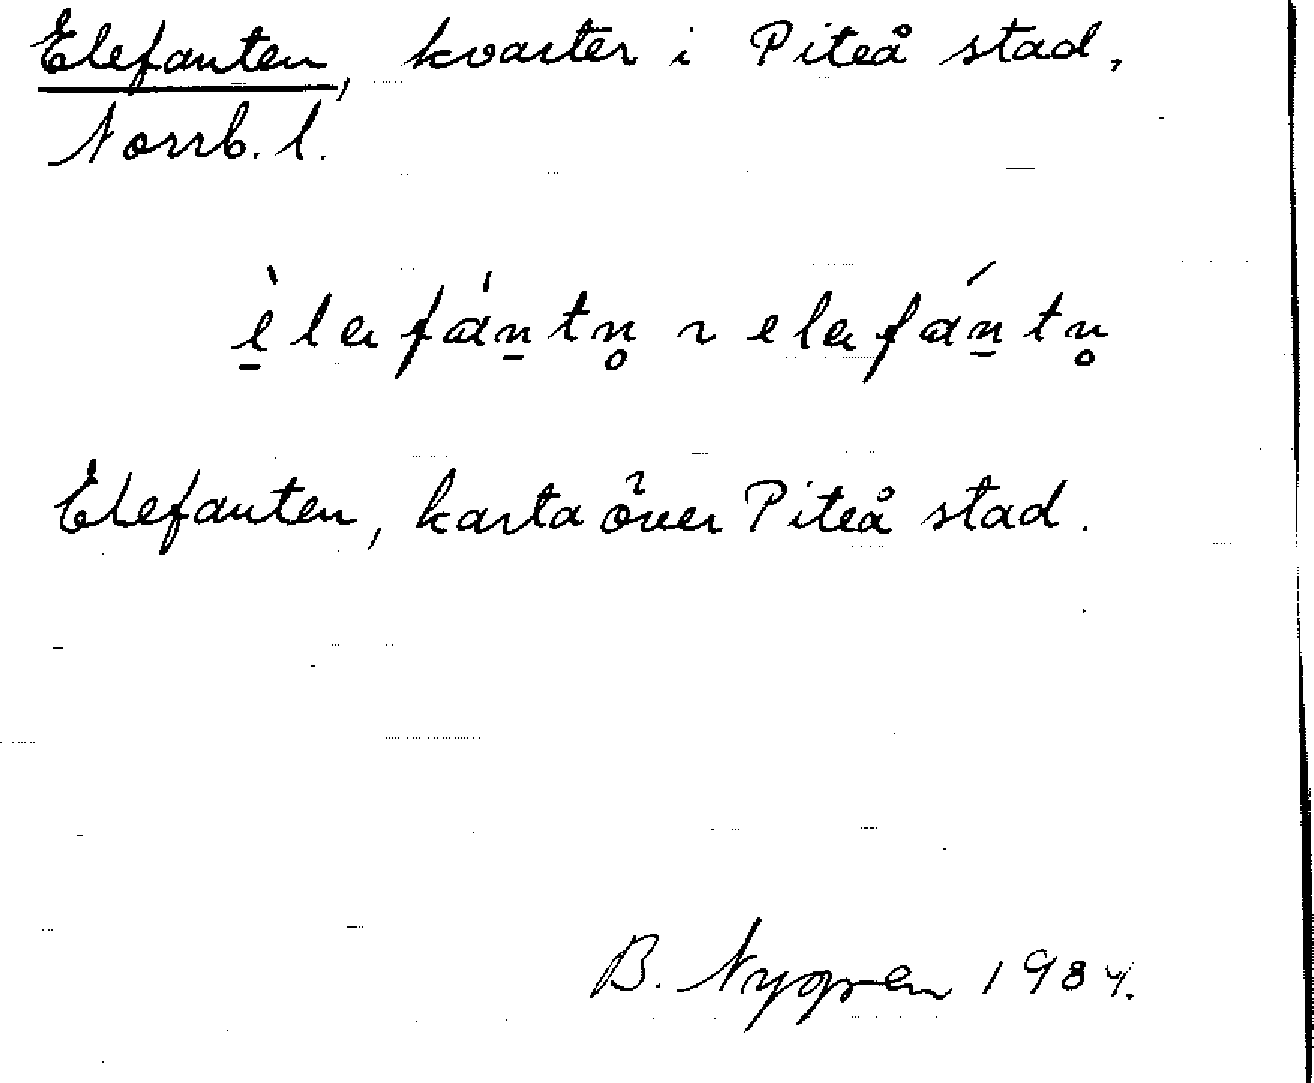 Elefanten, kvarter i Piteå stad,
Norrb. l.
è̱lefáṉtn̥ ~ elefáṉtn̥
Elefanten, karta över Piteå stad.
B. Nygren 1934.